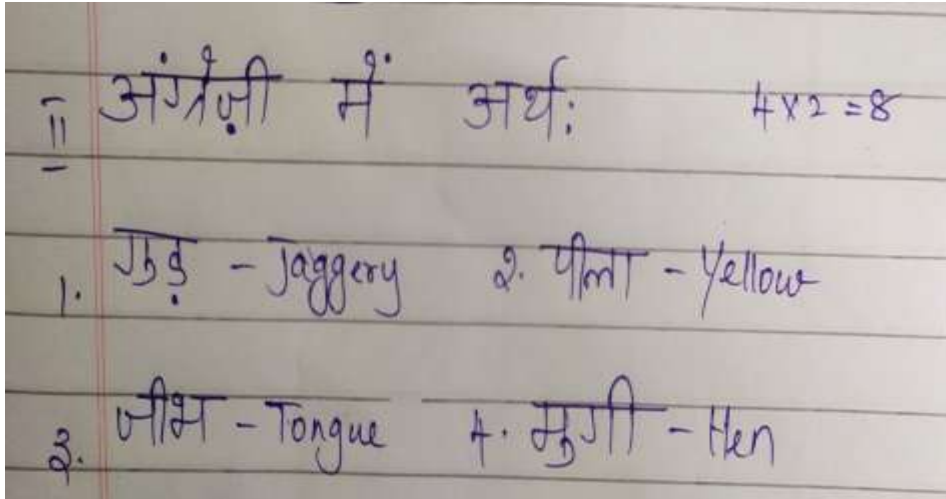 II अंग्रेज़ी में अर्थ: 4x2=8
1. गुड़ - Jaggery २. पीला - Yellow
३. जीभ - Tongue 4. मुर्गी - Hen